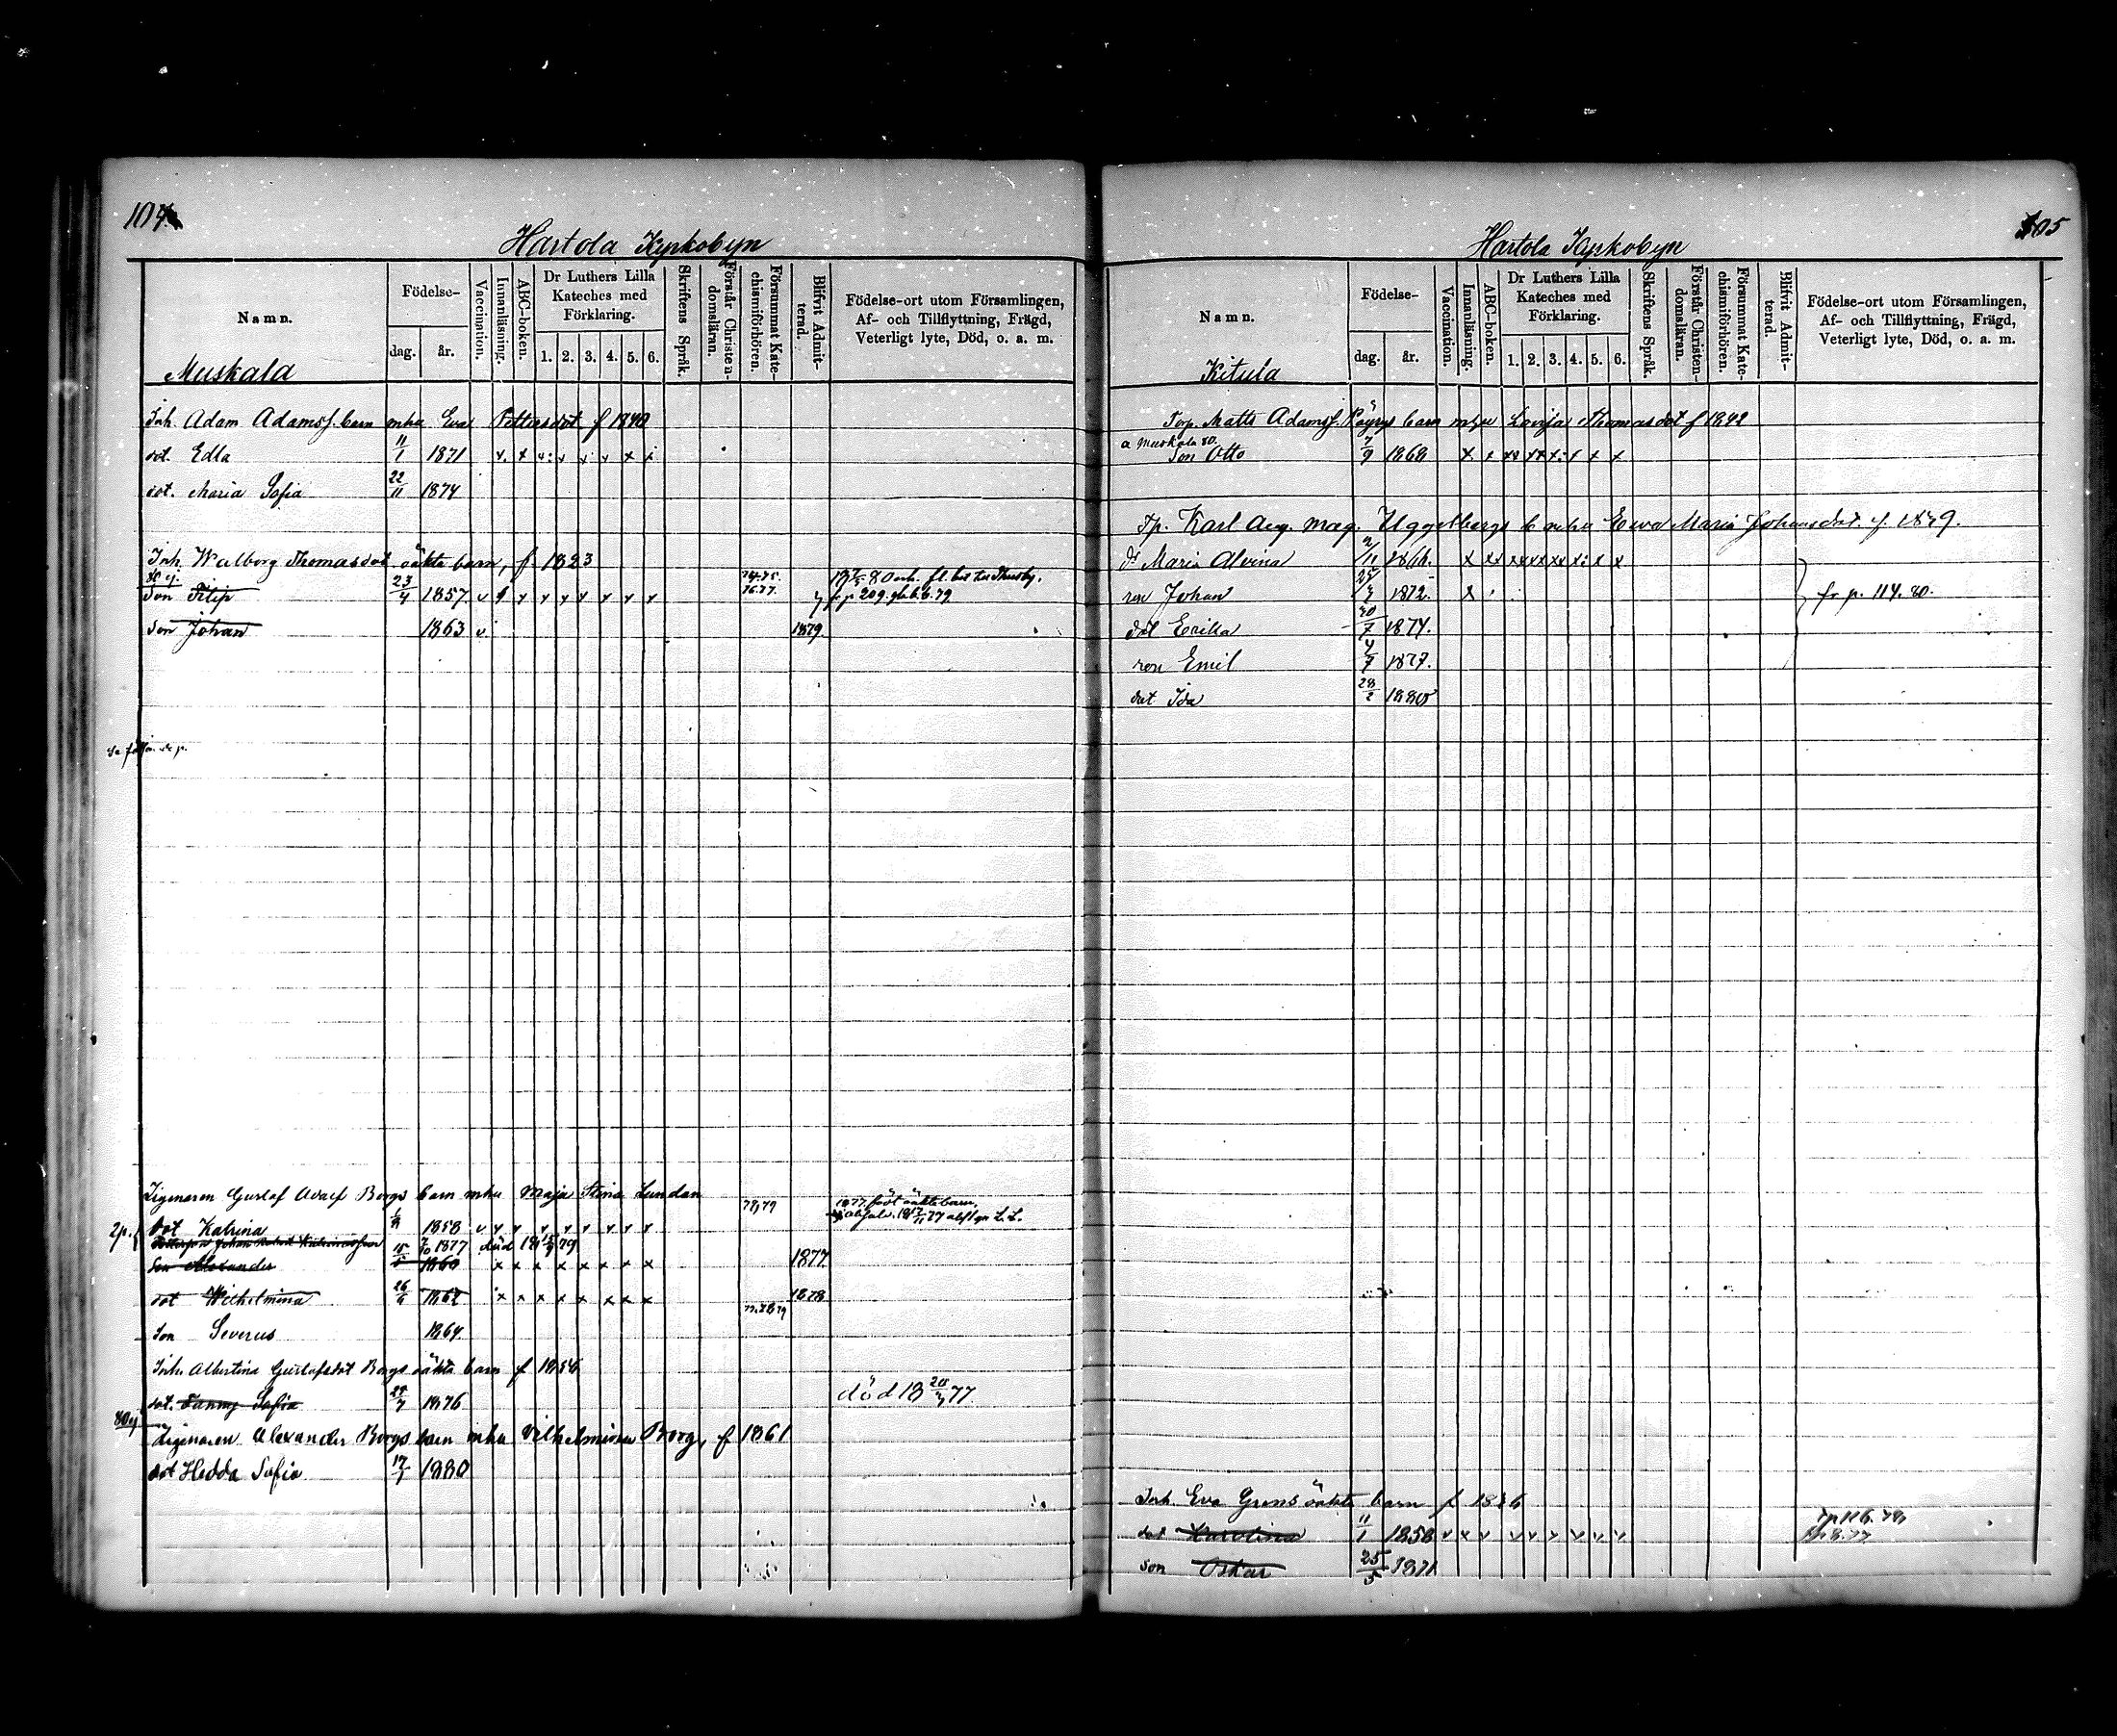 104
Hartola Kyrkobyn
Namn.
Födelse-
dag. år.
Vaccination.
Innanläsning.
ABC-boken.
Dr Luthers Lilla
Kateches med
Förklaring.
1. 2. 3. 4. 5. 6.
Skriftens Språk.
Förstår Christen-
domsläran.
Försummat Kate-
chismiförhören.
Blifvit Admit-
terad.
Födelse-ort utom Församlingen,
Af- och Tillflyttning, Frägd,
Veterligt lyte, Död, o. a. m.
Muskala
Inh. Adam Adamss. barn mhu Eva Pettersdot f 1840
dot. Edla 11/1 1871
dot. Maria Sofia 22/11 1874
Inh. Walborg Thomasdot oäkta barn, f. 1823
Son Filip 23/4 1857 74.75. 76.77.
p 209. 79
Son Johan 1863 1879
Zigenaren Gustaf Adolf Borgs barn mhu Maja Stina Lundan
2p. dot Katrina 1858 78,79
1877 född oäkta barn,
Johan 1877 död 79
Son Alexander 1860 1877
dot Wilhelmina 26 1862 1878
77.78.79
Son Severus 1864
Inh. Albertina Gustafsdot Borgs oäkta barn f 1856
dot. Fanny Sofia 1876 död 18 77.
Zigenaren Alexander Borgs barn mhu Vilhelmina Borg, f 1861
dot Hedda Sofia 17/1 1880
105
Hartola Kyrkobyn
Namn.
Födelse-
dag. år.
Vaccination.
Innanläsning.
ABC-boken.
Dr Luthers Lilla
Kateches med
Förklaring.
1. 2. 3. 4. 5. 6.
Skriftens Språk.
Förstår Christen-
domsläran.
Försummat Kate-
chismiförhören.
Blifvit Admit-
terad.
Födelse-ort utom Församlingen,
Af- och Tillflyttning, Frägd,
Veterligt lyte, Död, o. a. m.
Kitula
Torp. Matts Adamss. barn mhu Lovisa Thomasdot f 1842
a Muskala 80.
Son Otto 7/9 1868
Tp. Karl Aug. Mag. Uggelbergs b mhu Ewa Maria Johansdot f. 1849.
Maria Alvina
son Johan 1872.
fr p. 114. 80.
dot Erika 30/7 1874.
son Emil 4/7 1877.
dot Ida 28/2 1880
Inh. Eva Grens oäkta barn f
dot Karolina 11/1 1858
son Oskar 25/5 1871